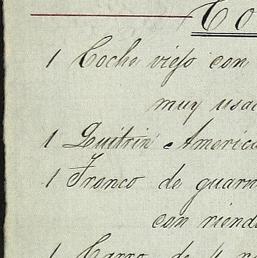 Co
1 Coche viejo con
muy usad
1 Quitrin America
1 Tronco de guarn
con riend
1 Carro de 4